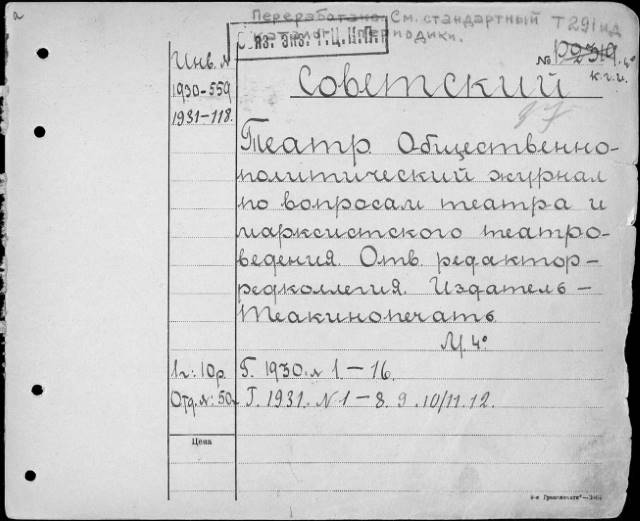 а
Переработано. См. стандартный Т 291 ид
каталог периодики.
Обяз. экз. Г.Ц.К.П.
№ р 2319. 4°
к.г.и.
Инв. №
1930-559
1931-118.
Советский
97
Театр. Общественно-
политический журнал
по вопросам театра и
марксистского театро-
ведения. Отв. редактор-
редколлегия. Издатель –
Теакинопечать.
М. 4°
1 г: 10р. Г. 1930. № 1 – 16.
Отд. №: 50к. Г. 1931. № 1 – 8. 9. 10/11. 12.
Цена